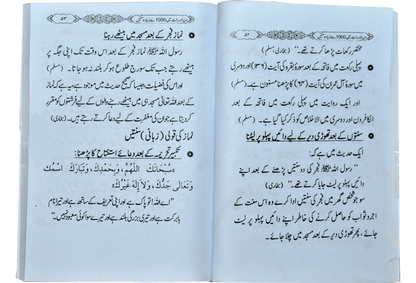 ۵۳
مختصر رکعات پڑھا کرتے تھے۔" (بخاری، مسلم)
پہلی رکعت میں فاتحہ کے بعد سورۃ بقرہ کی آیت (۱۳۶) اور دوسری
میں سورۃ آل عمران کی آیت (۶۴) کا پڑھنا مسنون ہے۔ (مسلم)
اور ایک روایت میں پہلی رکعت میں فاتحہ کے بعد
الکافرون اور دوسری میں الاخلاص کا ذکر کیا گیا ہے۔ (مسلم)
سنتوں کے بعد تھوڑی دیر کے لیے دائیں پہلو پر لیٹنا
ایک حدیث میں ہے کہ:
"رسول اللہ ﷺ فجر کی دو سنتیں پڑھنے کے بعد اپنے
دائیں پہلو پر لیٹ جایا کرتے تھے۔" (بخاری)
سو جو شخص گھر میں فجر کی سنتیں ادا کرے وہ اس سنت کے
اجر و ثواب کو حاصل کرنے کی خاطر اپنے دائیں پہلو پر لیٹ
جائے، پھر تھوڑی دیر کے بعد مسجد میں چلا جائے۔
۵۴
دن اور رات میں 1000 سے زیادہ سنتیں
نماز فجر کے بعد مسجد میں بیٹھے رہنا
رسول اللہ ﷺ نماز فجر کے بعد اس وقت تک اپنی جگہ پر
بیٹھے رہتے جب تک سورج طلوع ہو کر بلند نہ ہو جاتا۔ (مسلم)
اور اس کی فضیلت جیسا کہ صحیح حدیث میں موجود ہے یہ ہے کہ نماز
کے بعد اللہ تعالیٰ مسجد میں ہی بیٹھے رہنے والوں کے لیے فرشتوں کو مقرر
کر دیتا ہے جو ان کی مغفرت کے لیے دعا کرتے رہتے ہیں۔ (بخاری)
نماز کی قولی (زبانی) سنتیں
تکبیر تحریمہ کے بعد دعائے استفتاح کا پڑھنا:
"سُبْحَانَكَ اللّٰهُمَّ، وَبِحَمْدِكَ، وَتَبَارَكَ اسْمُكَ
وَتَعَالٰى جَدُّكَ، وَلَا إِلٰهَ غَيْرُكَ"
"اے اللہ! تو پاک ہے اور اپنی تعریف کے ساتھ ہے اور تیرا نام
بابرکت ہے اور تیری بزرگی بلند ہے اور تیرے سوا کوئی معبود نہیں۔"